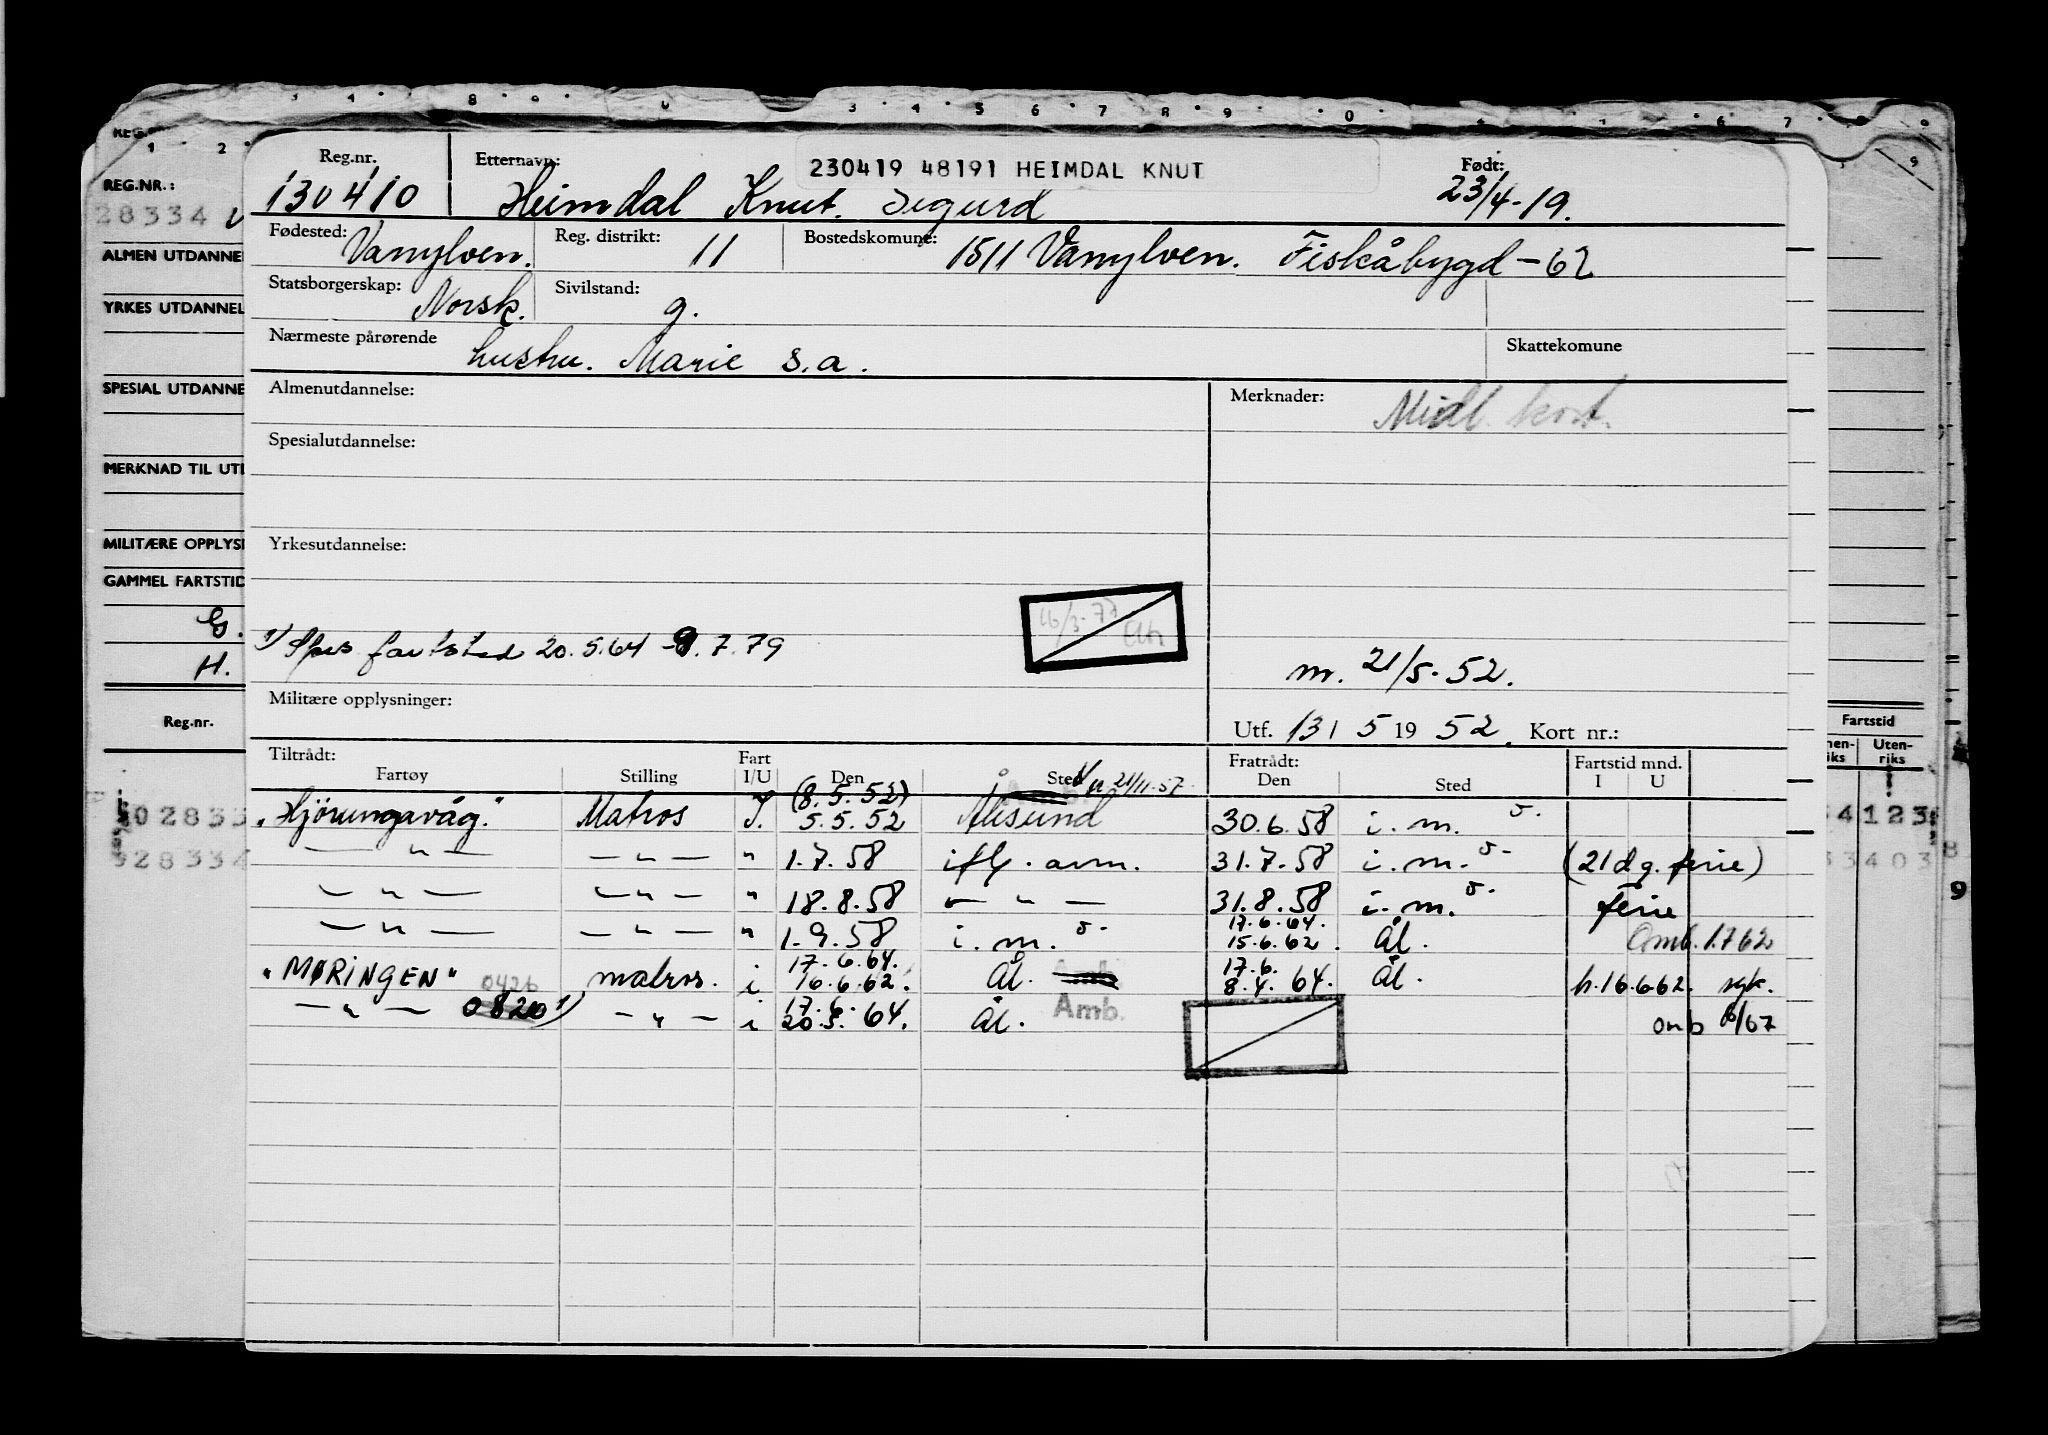 REG.NR.:
28334
ALMEN UTDANNE
YRKES UTDANNEL
SPESIAL UTDANNE
MERKNAD TIL UTI
MILITÆRE OPPLYSI
GAMMEL FARTSTID
G.
H.
Reg.nr.
02833
928334
Reg.nr. Etternavn: 230419 48191 HEIMDAL KNUT Født:
130410 Heimdal Knut. Sigurd 23/4-19.
Fødested: Vanylven. Reg. distrikt: 11 Bostedskomune: 1511 Vanylven. Fiskåbygd - 62
Statsborgerskap: Norsk. Sivilstand: g.
Nærmeste pårørende hustru. Marie s.a. Skattekomune
Almenutdannelse: Merknader: Midl. kort.
Spesialutdannelse:
Yrkesutdannelse:
16/3-77
1) Spes fartsted 20.5.64 - 9.7.79
m. 21/5-52.
Militære opplysninger:
Utf. 13/ 5 19 52. Kort nr.:
Tiltrådt: Fart Fratrådt: Fartstid mnd.
Fartøy Stilling I/U Den Sted 21/11-57. Den Sted I U
(8.5.52)
"Hjörungavåg." Matros I. 5.5.52 Ålesund 30.6.58 i.m.
— " — — " — " 1.7.58 ifl. avm. 31.7.58 i.m. (21 dg. ferie)
— " — — " — " 18.8.58 — " — 31.8.58 i.m. ferie
17.6.64.
— " — — " — " 1.9.58 i.m. 15.6.62. Ål. Omb. 1.7.62
17.6.64. 17.6.
"MØRINGEN" 0426 matros. i 16.6.62. Ål. 8.4.64. Ål. h. 16.6.62. syk.
17.6.
— " — 0820 1) — " — i 20.5.64. Ål. Amb. omb 6/67
Fartstid
Uten-
riks riks
4123
3403
8
9